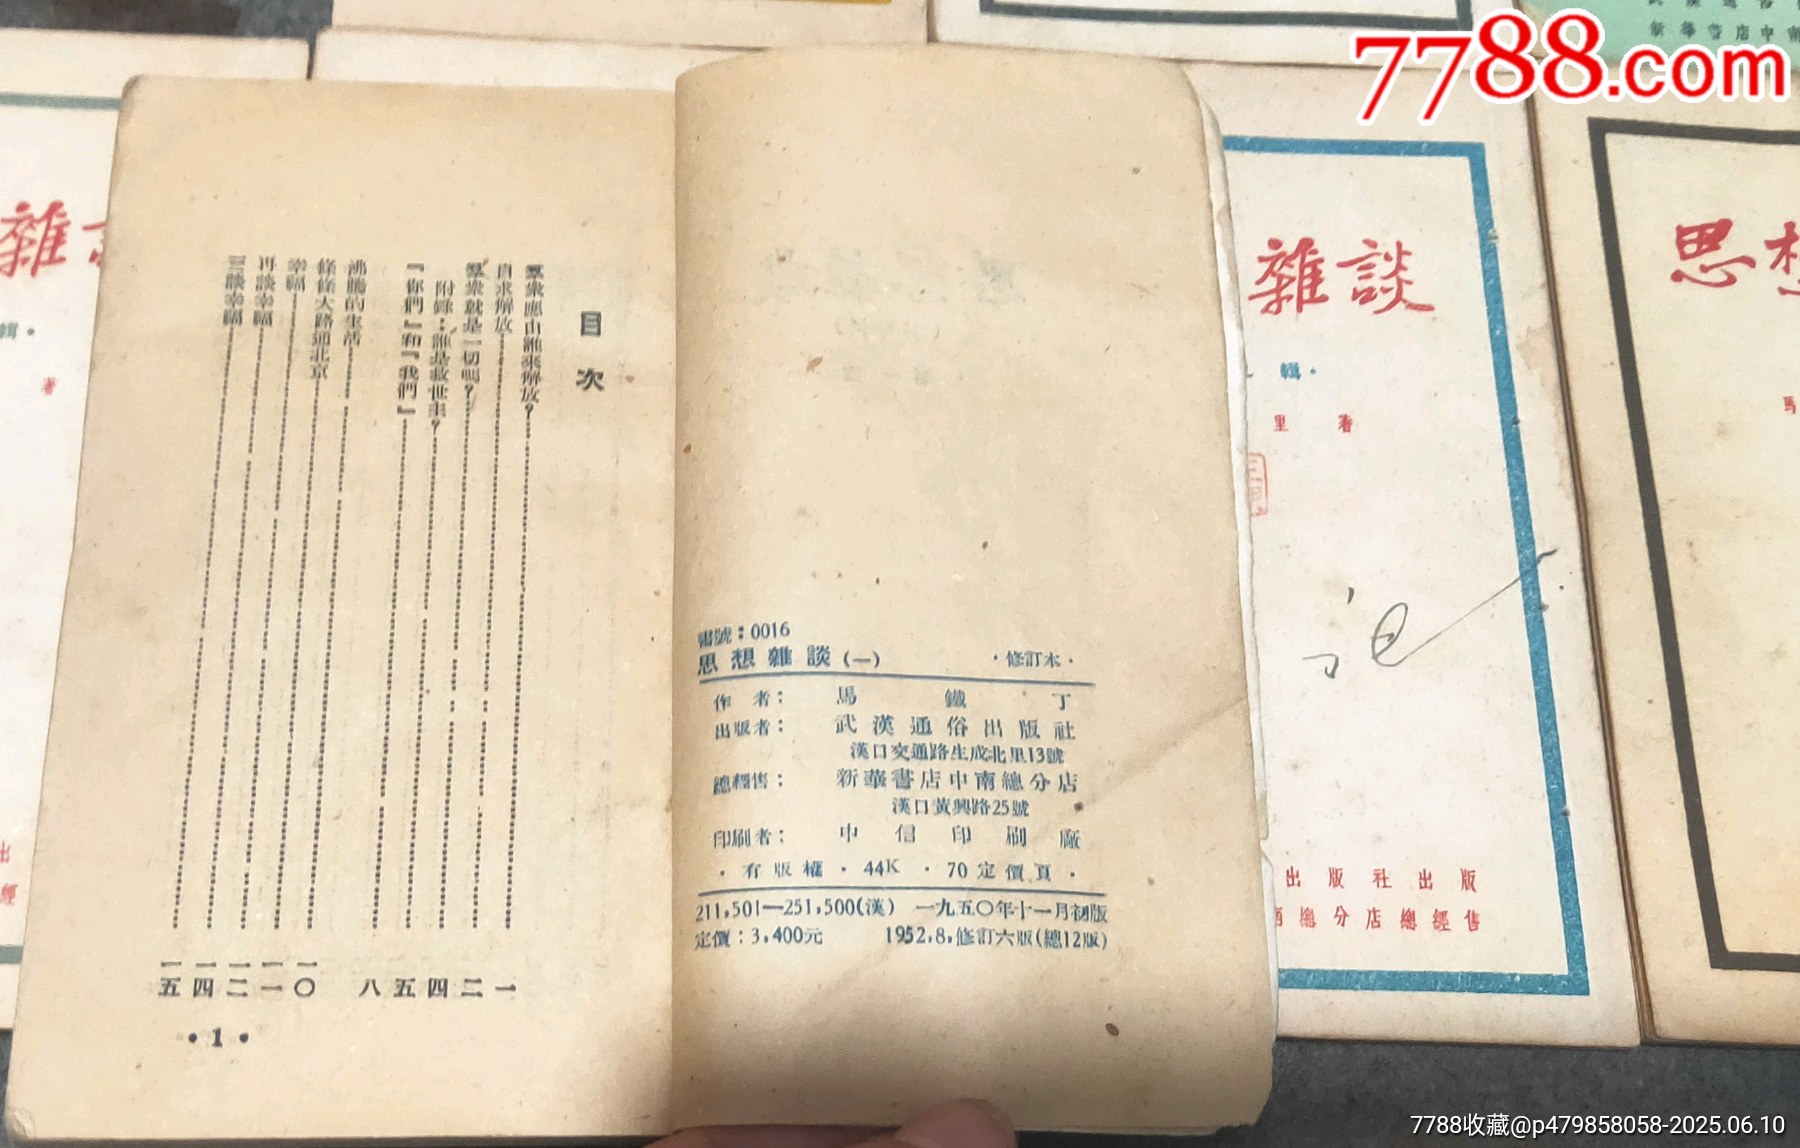 7788.com
目次
羣衆應由誰來解放?……一
自求解放……二
羣衆就是一切嗎?……四
附錄:誰是救世主?……五
『你們』和『我們』……八
沸騰的生活……一〇
條條大路通北京……一一
幸福……一二
再談幸福……一四
三談幸福……一五
•1•
書號:0016
思想雜談(一) ·修訂本·
作者: 馬鐵丁
出版者: 武漢通俗出版社
漢口交通路生成北里13號
總經售: 新華書店中南總分店
漢口黃興路25號
印刷者: 中信印刷廠
·有版權·44K·70定價頁·
211,501—251,500(漢) 一九五〇年十一月初版
定價:3,400元 1952,8,修訂六版(總12版)
雜
輯·
著
出
經
雜談
輯·
里著
出版社出版
總分店總經售
思想
馬
新華書店中南
7788收藏@p479858058-2025.06.10